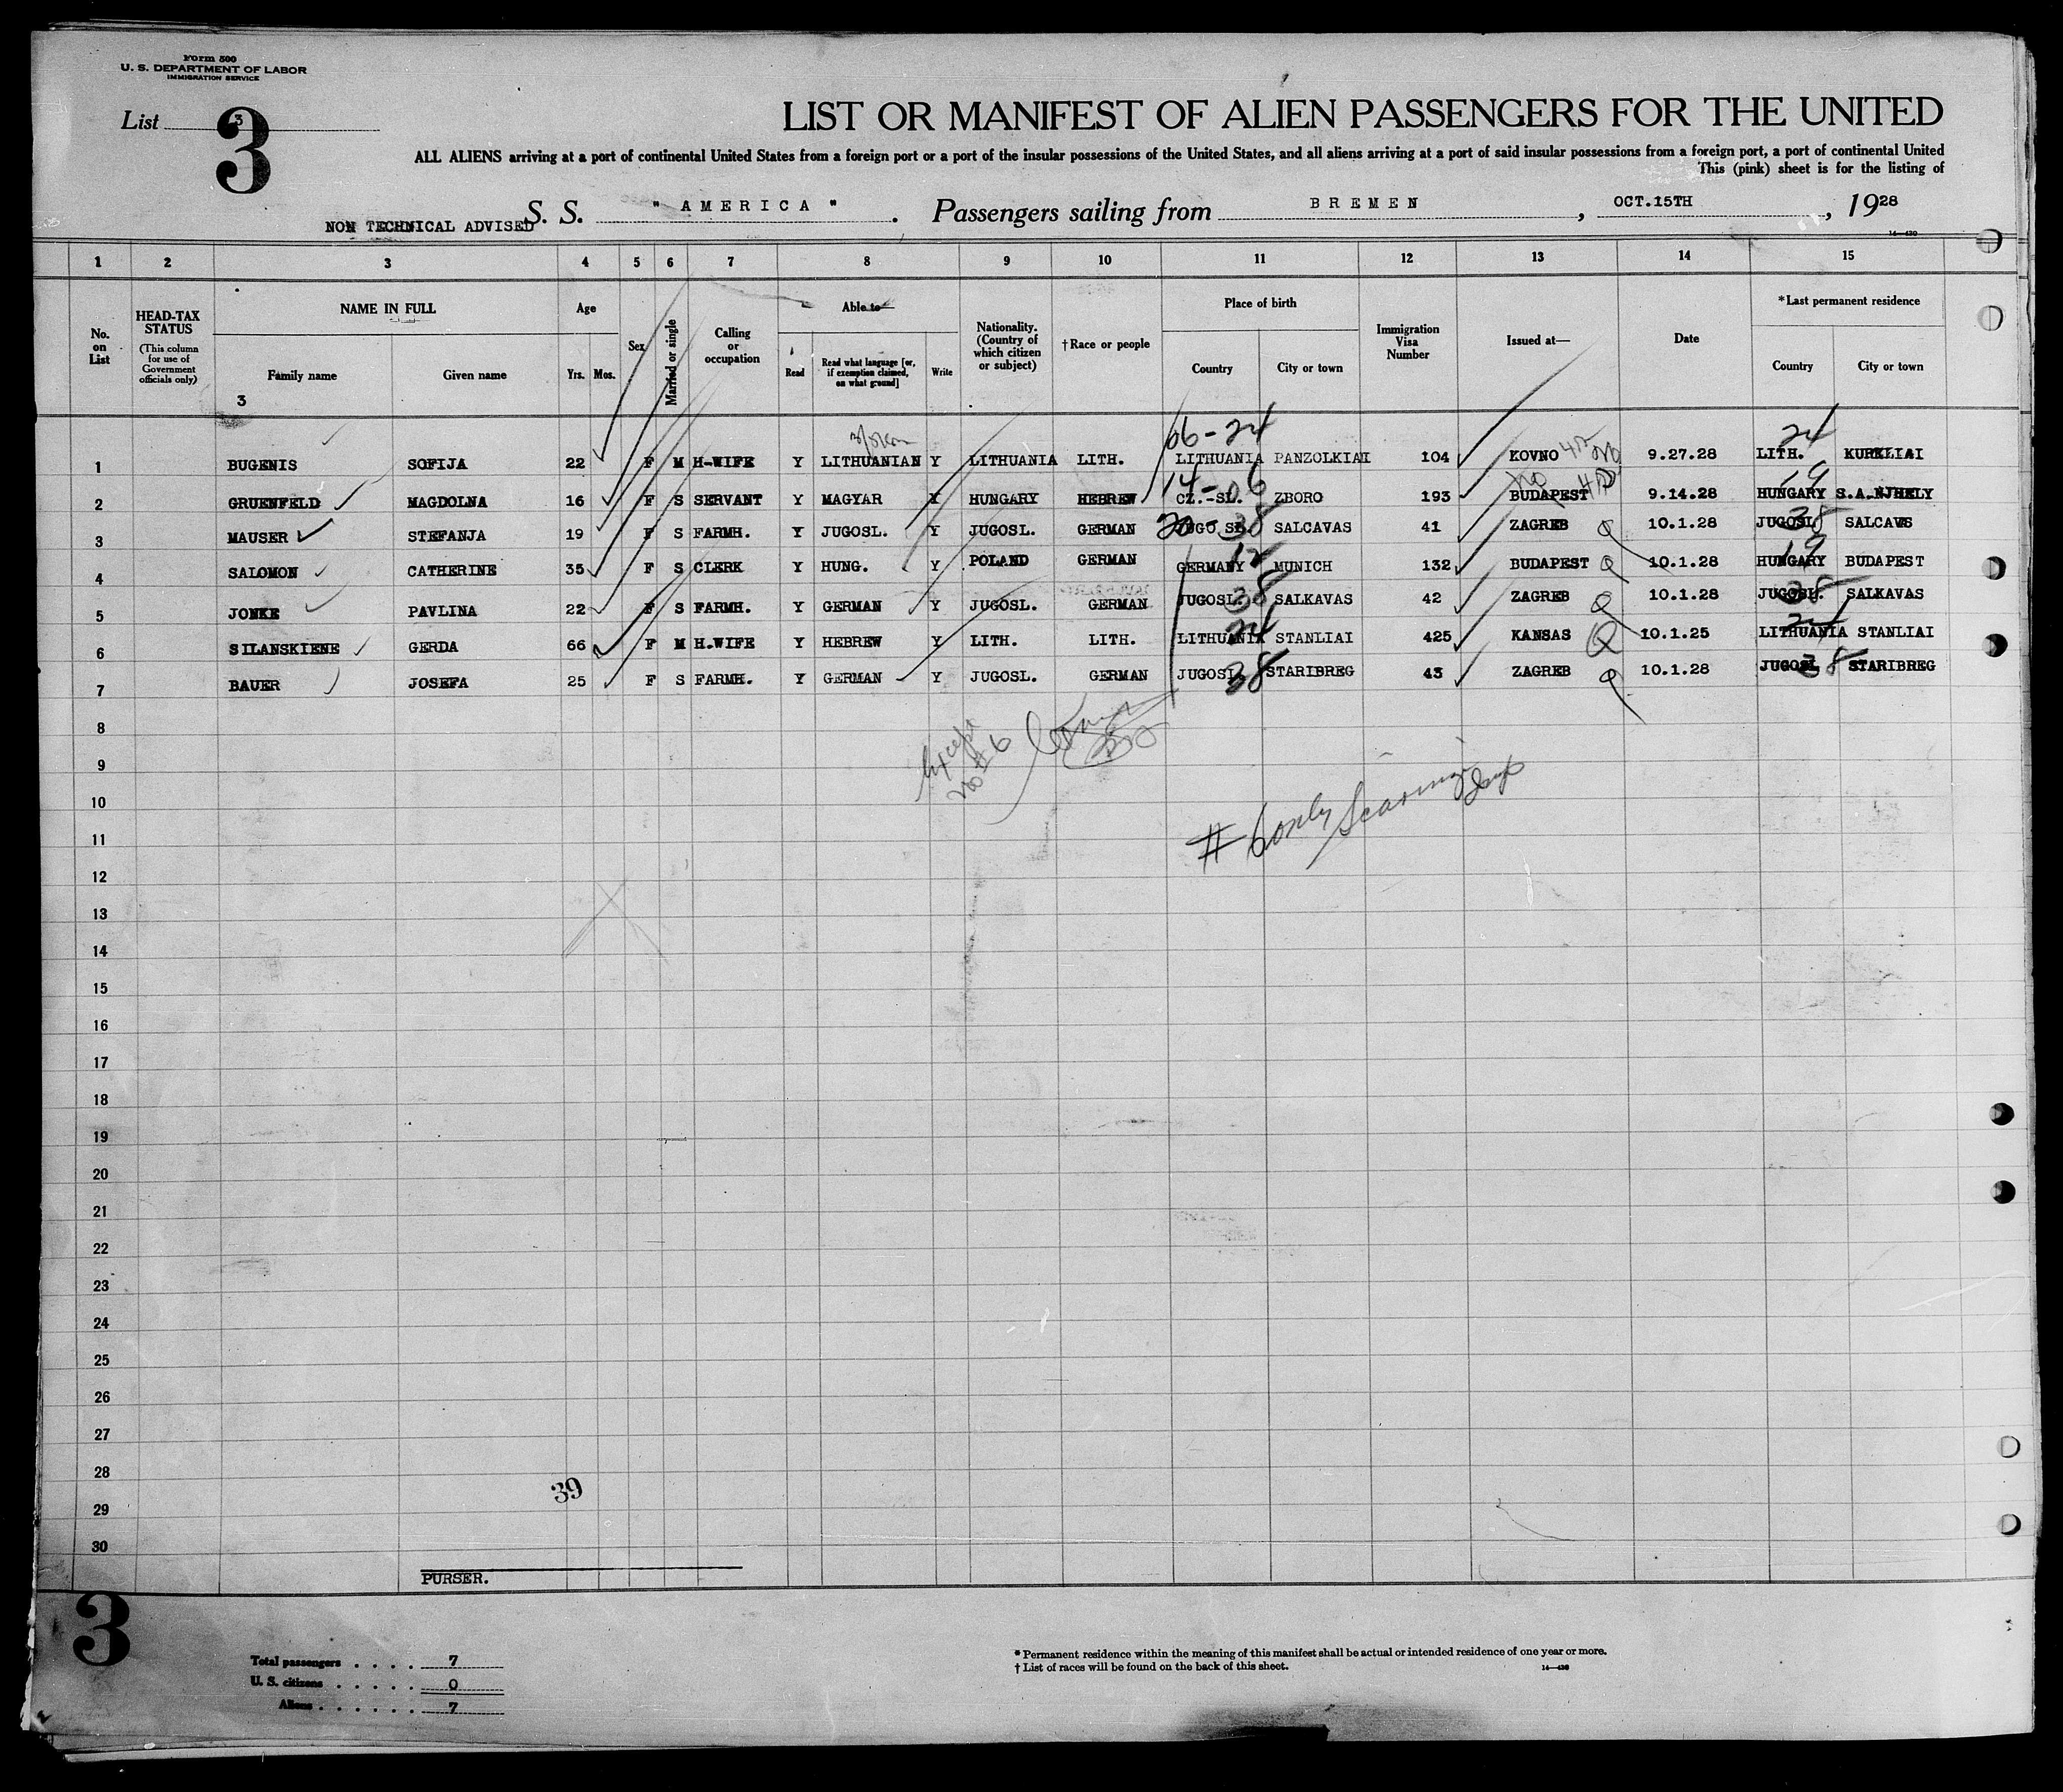 Form 500
U. S. DEPARTMENT OF LABOR
IMMIGRATION SERVICE
List 3
3
LIST OR MANIFEST OF ALIEN PASSENGERS FOR THE UNITED
ALL ALIENS arriving at a port of continental United States from a foreign port or a port of the insular possessions of the United States, and all aliens arriving at a port of said insular possessions from a foreign port, a port of continental United
This (pink) sheet is for the listing of
NON TECHNICAL ADVISED S. S. " AMERICA " . Passengers sailing from BREMEN , OCT.15TH , 1928
14—430
1 2 3 4 5 6 7 8 9 10 11 12 13 14 15
No. on List
HEAD-TAX STATUS (This column for use of Government officials only)
NAME IN FULL
Family name Given name
3
Age
Yrs. Mos.
Sex
Married or single
Calling or occupation
Able to—
Read Read what language [or, if exemption claimed, on what ground] Write
Nationality. (Country of which citizen or subject)
†Race or people
Place of birth
Country City or town
Immigration Visa Number
Issued at—
Date
*Last permanent residence
Country City or town
06-24 24
1 BUGENIS SOFIJA 22 F M H-WIFE Y LITHUANIAN Y LITHUANIA LITH. LITHUANIA PANZOLKIAI 104 KOVNO 9.27.28 LITH. KURKLIAI
14-06 no 19
2 GRUENFELD MAGDOLNA 16 F S SERVANT Y MAGYAR Y HUNGARY HEBREW CZ.-SL. ZBORO 193 BUDAPEST 9.14.28 HUNGARY S.A.NJHELY
20-38 38
3 MAUSER STEFANJA 19 F S FARMH. Y JUGOSL. Y JUGOSL. GERMAN JUGO.SL. SALCAVAS 41 ZAGREB Q 10.1.28 JUGOSL SALCAVS
12 19
4 SALOMON CATHERINE 35 F S CLERK Y HUNG. Y POLAND GERMAN GERMANY MUNICH 132 BUDAPEST Q 10.1.28 HUNGARY BUDAPEST
38 38
5 JONKE PAVLINA 22 F S FARMH. Y GERMAN Y JUGOSL. GERMAN JUGOSL. SALKAVAS 42 ZAGREB Q 10.1.28 JUGOSL. SALKAVAS
24 24
6 SILANSKIENE GERDA 66 F M H.WIFE Y HEBREW Y LITH. LITH. LITHUANIA STANLIAI 425 KANSAS Q 10.1.25 LITHUANIA STANLIAI
38 38
7 BAUER JOSEFA 25 F S FARMH. Y GERMAN Y JUGOSL. GERMAN JUGOSL STARIBREG 43 ZAGREB Q 10.1.28 JUGOSL STARIBREG
8
Except
No # 6
9
10
# 6 only Insp
11
12
13
14
15
16
17
18
19
20
21
22
23
24
25
26
27
28
39
29
30
PURSER.
3
Total passengers . . . . 7
U. S. citizens . . . . . 0
Aliens . . . . . . 7
* Permanent residence within the meaning of this manifest shall be actual or intended residence of one year or more.
† List of races will be found on the back of this sheet. 14—430